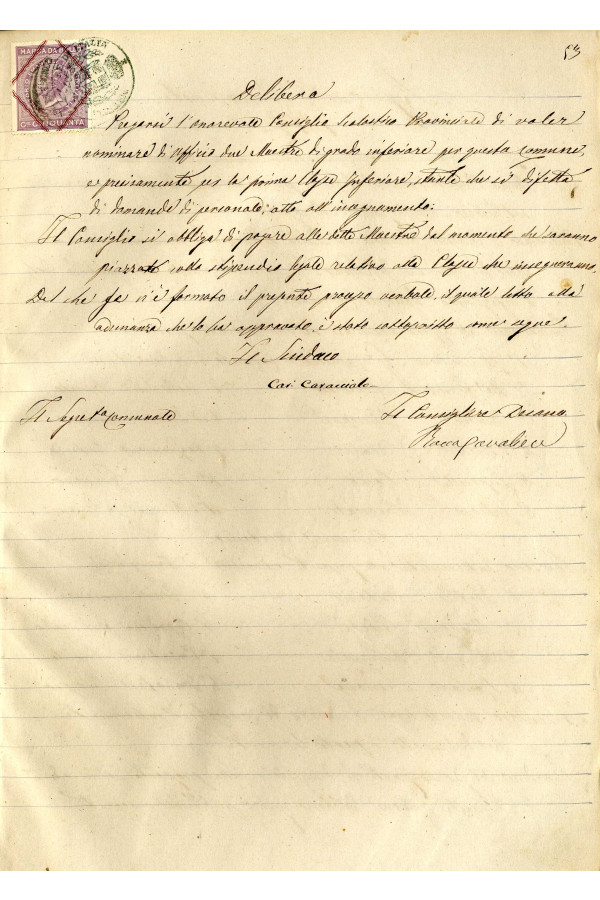 53
MARCA DA BOLLO
CINQUANTA
Delibera
Pregarsi l'onorevole Consiglio Scolastico Provinciale di voler
nominare di Officio due Maestre di grado inferiore per questa Comune,
e precisamente per la prima Classe Inferiore, stante che si difetta
di domande di personale, atto all'insegnamento.
Il Consiglio si obbliga di pagare alle dette Maestre dal momento che saranno
piazzate collo stipendio legale relativo alla Classe che insegneranno.
Del che se n'è formato il presente processo verbale, il quale letto alla
adunanza che lo ha approvato, è stato sottoscritto come segue.
Il Sindaco
Il Segret.o Comunale
Il Consigliere Anziano
Rocco Cavalieri